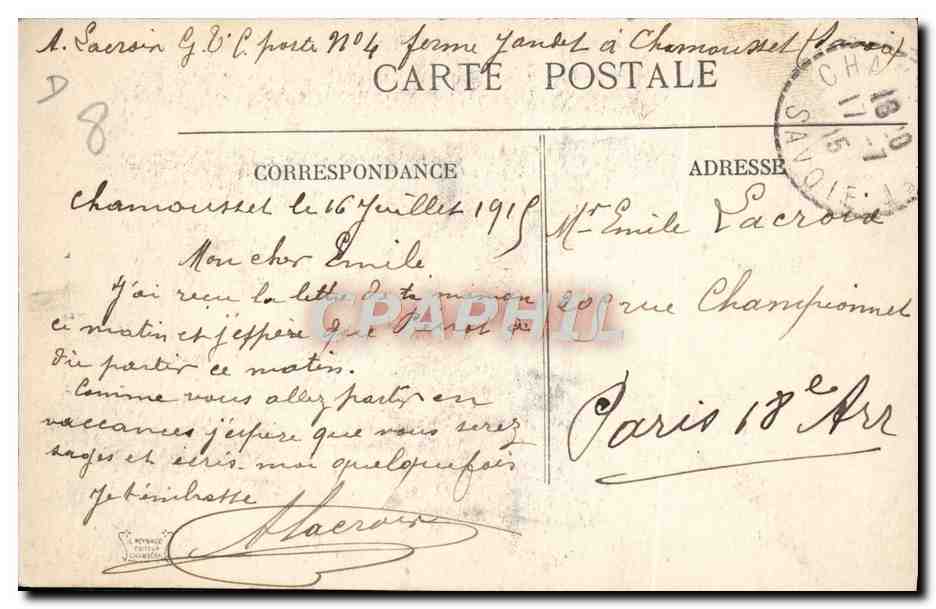 A. Lacroix G.V.C. poste No 4 ferme Jandet à Chamousset (Savoie)
CARTE POSTALE
CHA
18 20
17 -7
15
SAVOIE
D
8
CORRESPONDANCE
ADRESSE
Chamousset le 16 Juillet 1915
Mon cher Emile
J'ai reçu la lettre de ta maman
ce matin et j'espère que a
du partir ce matin.
Comme vous allez partir en
vaccances j'espère que vous serez
sages et écris-moi quelquefois
Je t'embrasse
A Lacroix
Mr Emile Lacroix
20 rue Championnet
Paris 18e Arr
CPAPHIL
REYNAUD
EDITEUR
CHAMBÉRY